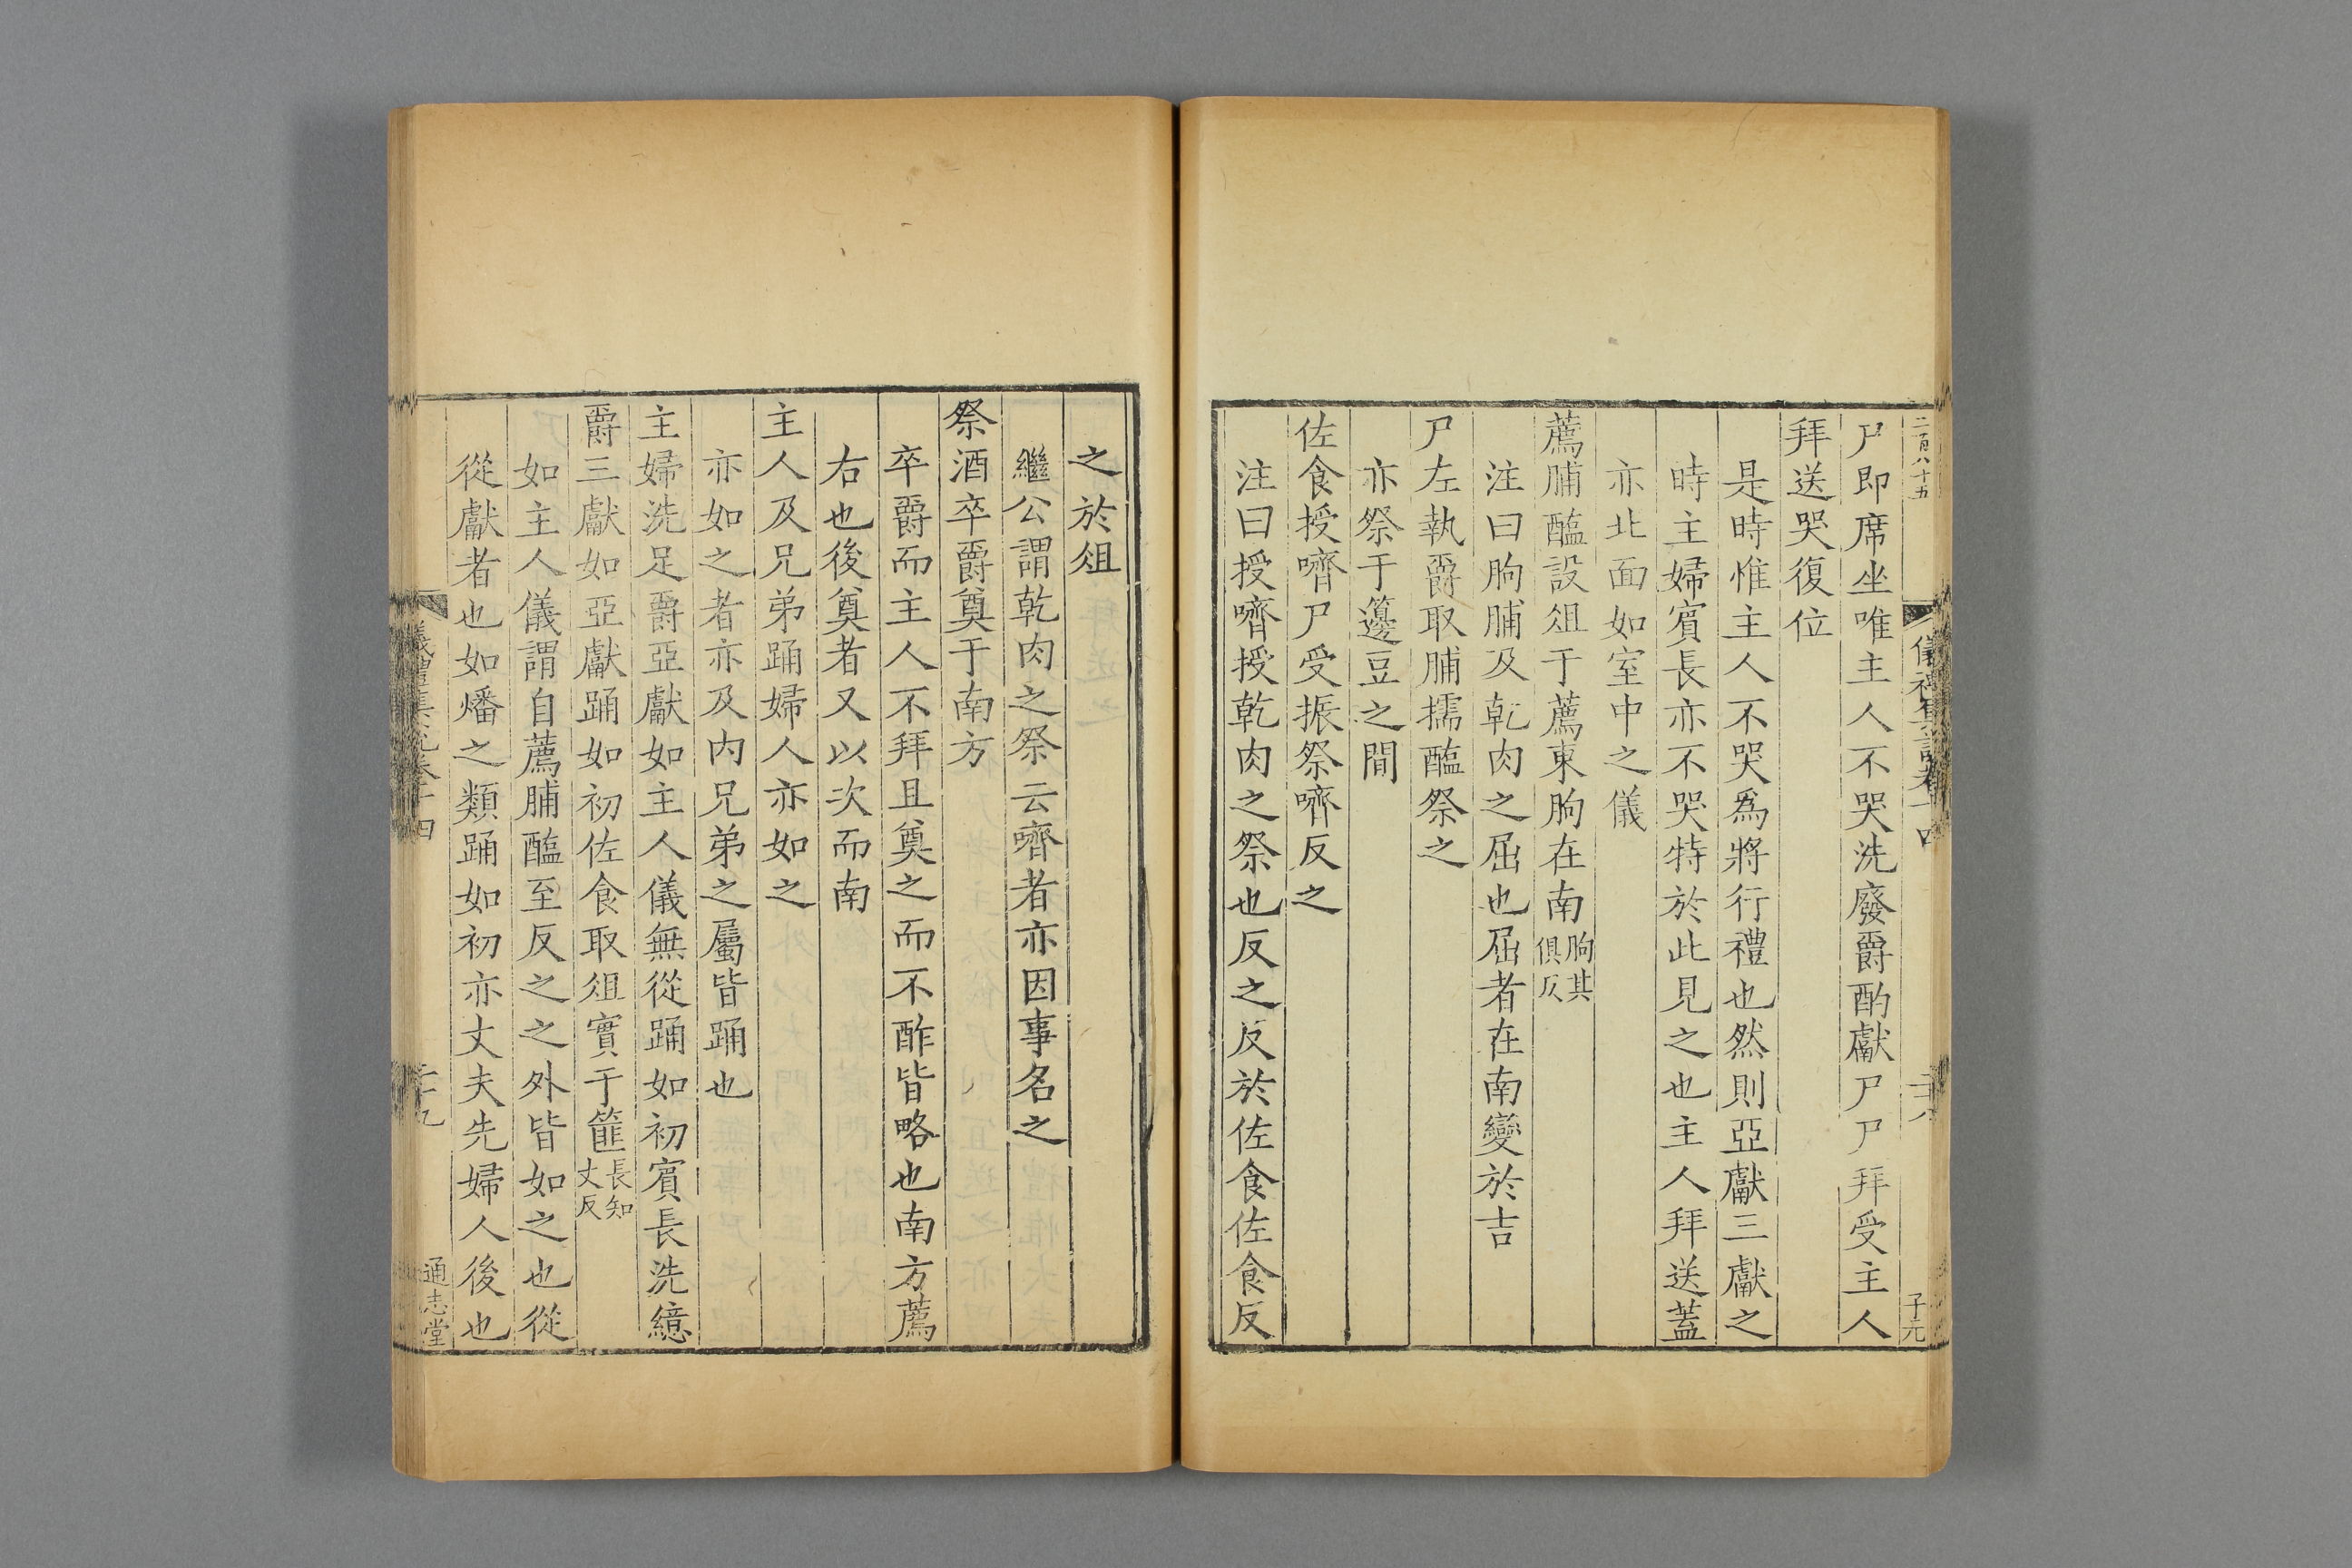 二百八十五
儀禮集說卷十四
二十八
子元
尸即席坐唯主人不哭洗廢爵酌獻尸尸拜受主人
拜送哭復位
是時惟主人不哭爲將行禮也然則亞獻三獻之
時主婦賓長亦不哭特於此見之也主人拜送蓋
亦北面如室中之儀
薦脯醢設俎于薦東朐在南朐其俱反
注曰朐脯及乾肉之屈也屈者在南變於吉
尸左執爵取脯擩醢祭之
亦祭于籩豆之間
佐食授嚌尸受振祭嚌反之
注曰授嚌授乾肉之祭也反之反於佐食佐食反
之於俎
繼公謂乾肉之祭云嚌者亦因事名之
祭酒卒爵奠于南方
卒爵而主人不拜且奠之而不酢皆略也南方薦
右也後奠者又以次而南
主人及兄弟踊婦人亦如之
亦如之者亦及內兄弟之屬皆踊也
主婦洗足爵亞獻如主人儀無從踊如初賓長洗繶
爵三獻如亞獻踊如初佐食取俎實于篚長知丈反
如主人儀謂自薦脯醢至反之之外皆如之也從
從獻者也如燔之類踊如初亦丈夫先婦人後也
儀禮集說卷十四
二十九
通志堂